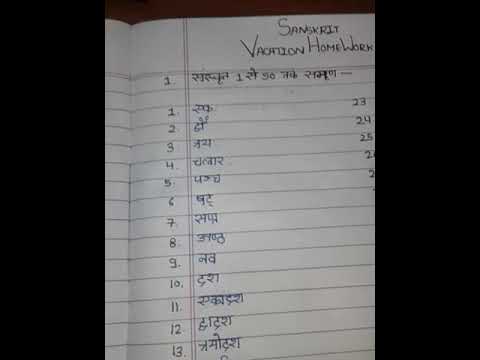 SANSKRIT
VACATION HOMEWORK
1. संस्कृत 1 से 50 तक
1. एक 23
2. द्वौ 24
3. त्रय 25
4. चत्वार
5. पञ्च
6 षट्
7. सप्त
8. अष्ठ
9. नव
10. दश
11. एकादश
12. द्वादश
13. त्रयोदश